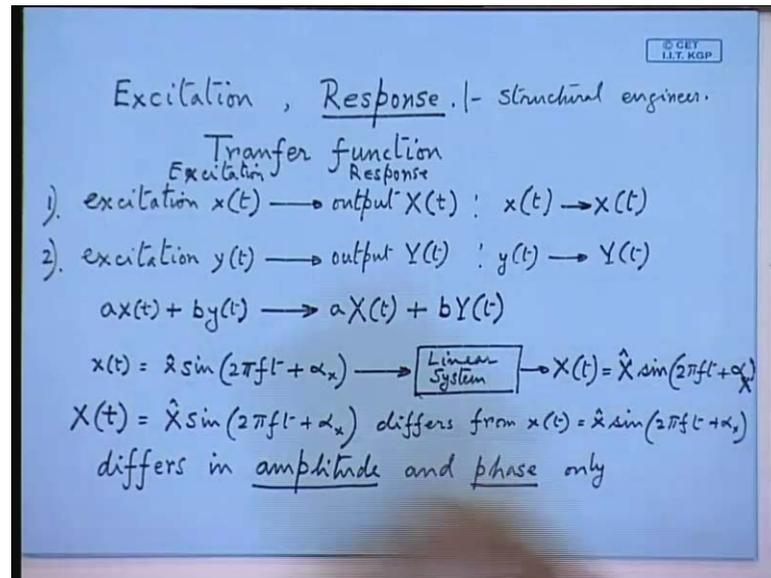 © CET
I.I.T. KGP
Excitation , Response . |- Structural engineer.
Tranfer function
Excitation Response
1). excitation x(t) → output X(t) : x(t) → X(t)
2). excitation y(t) → output Y(t) : y(t) → Y(t)
ax(t) + by(t) → aX(t) + bY(t)
x(t) = x̂ sin(2πft + αx) → Linear System → X(t) = X̂ sin(2πft + αX)
X(t) = X̂ sin(2πft + αx) differs from x(t) = x̂ sin(2πft + αx)
differs in amplitude and phase only